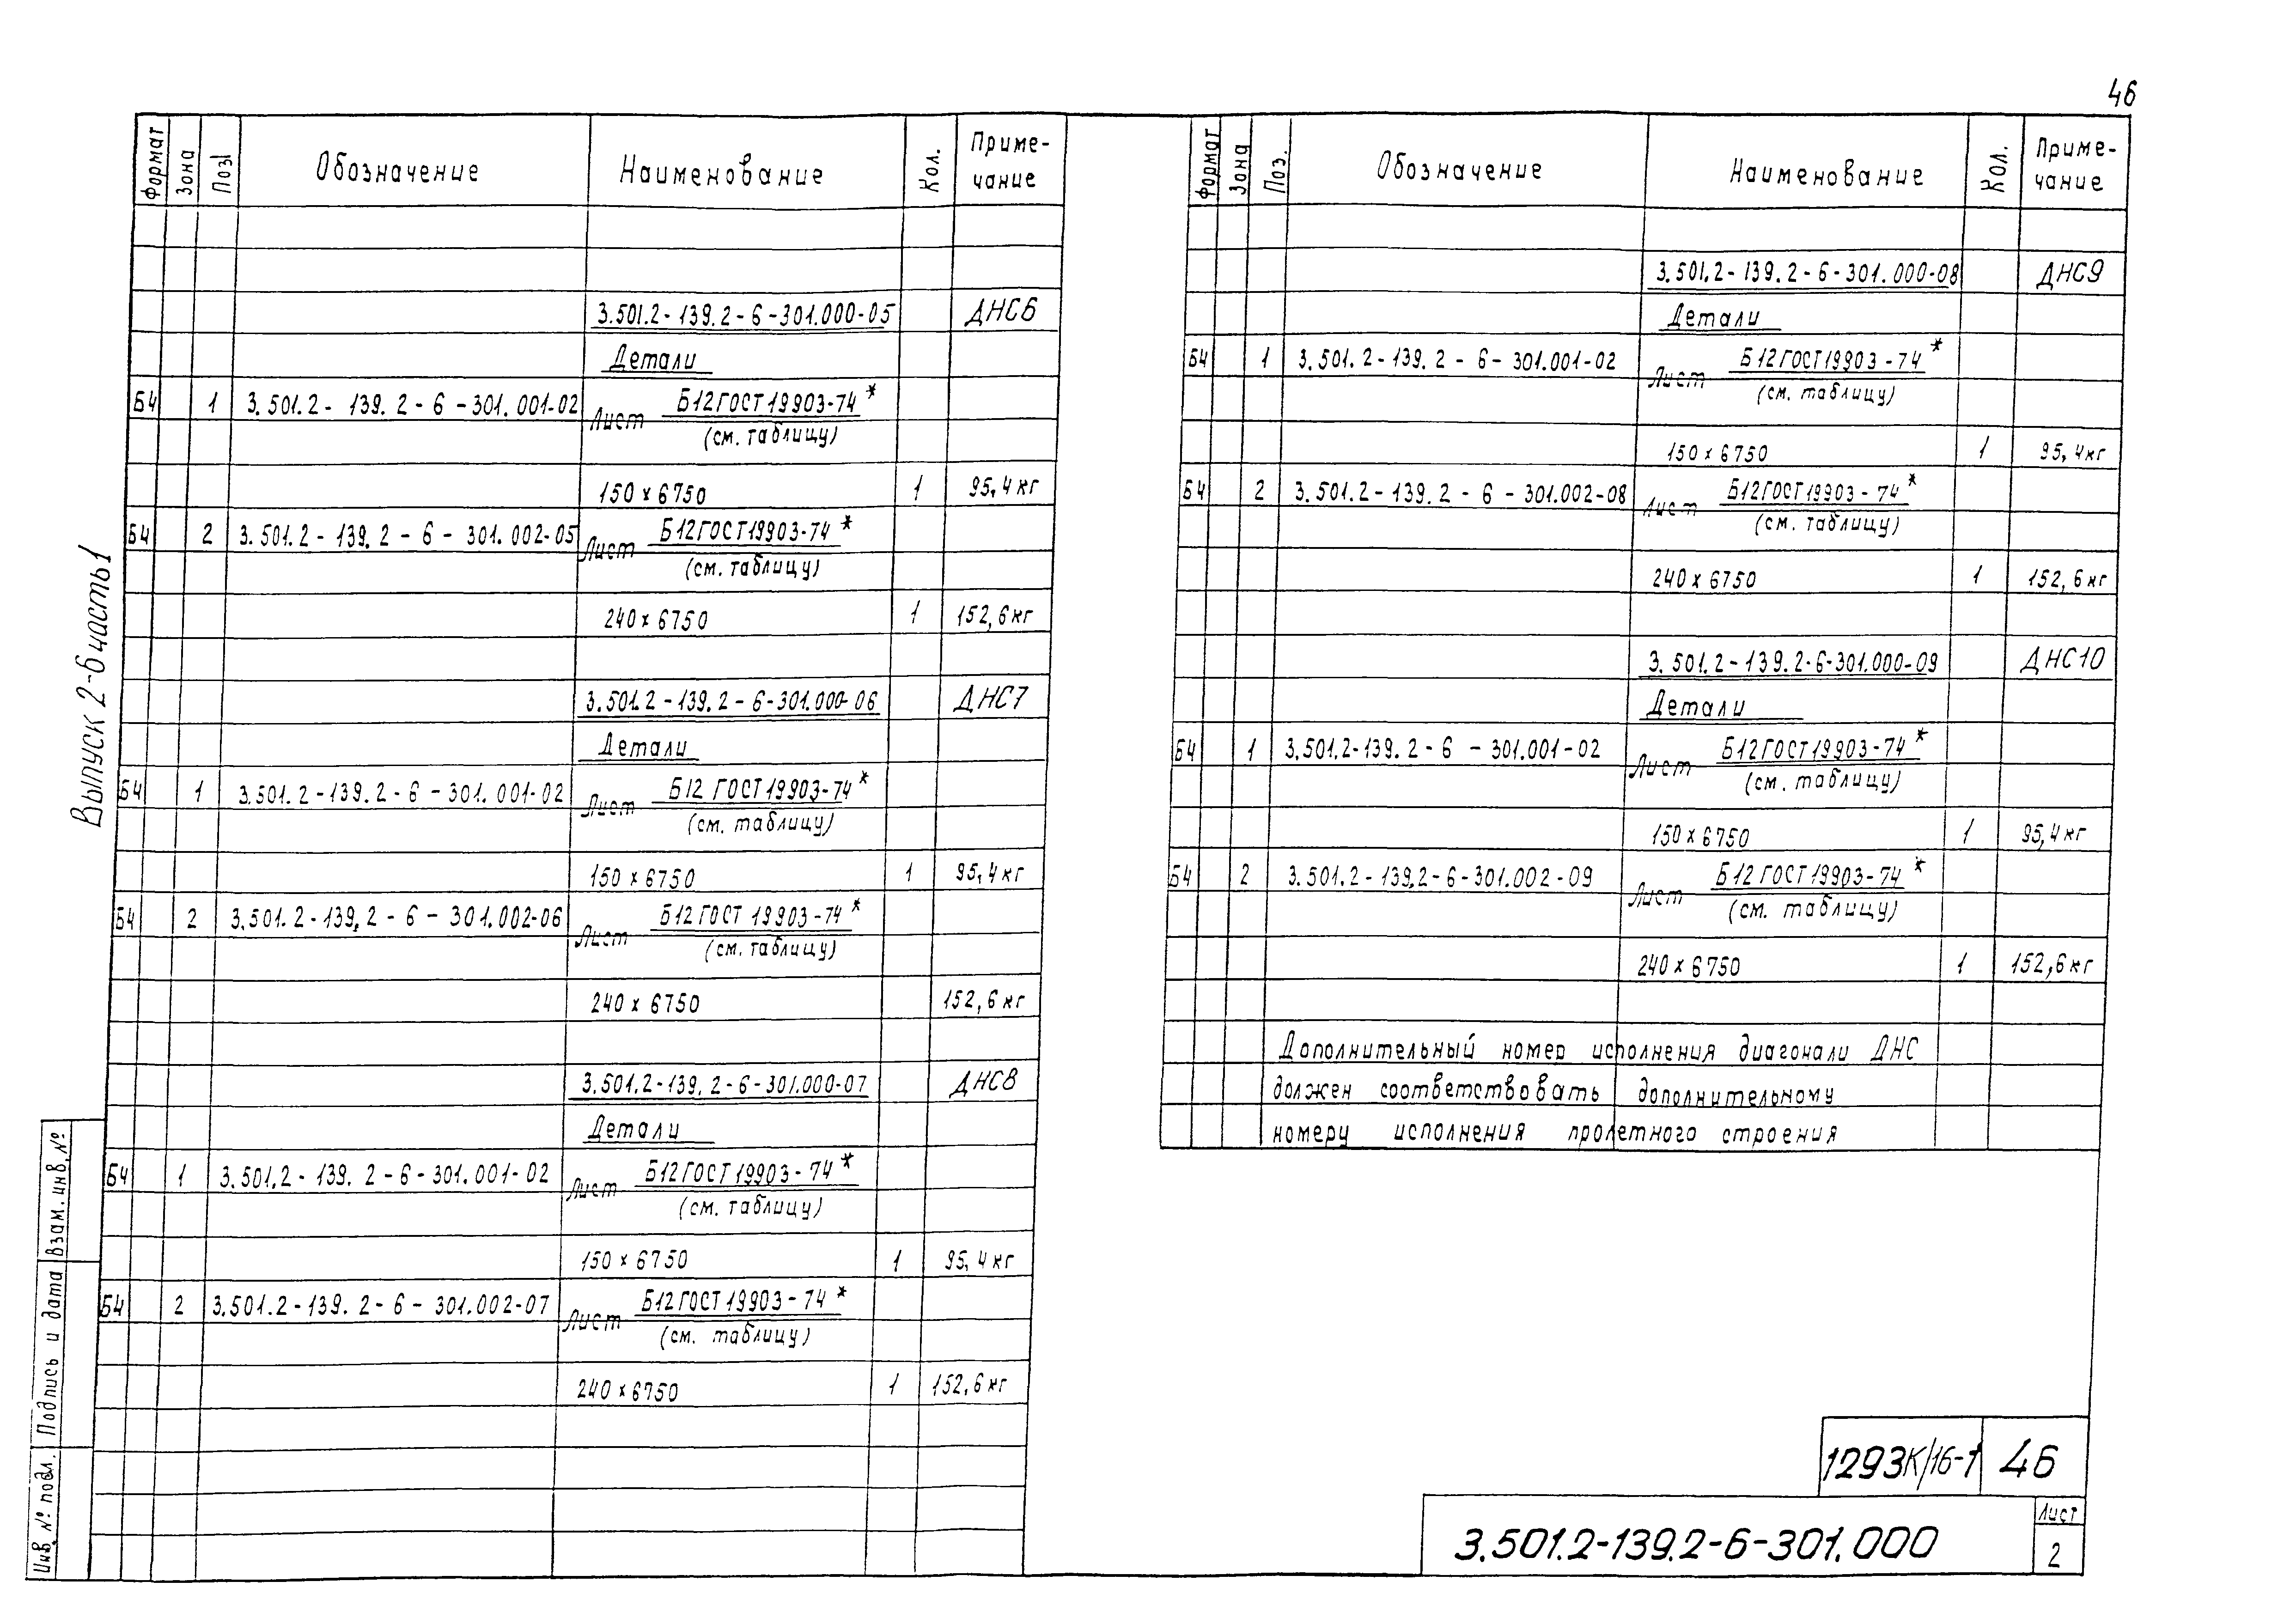 46
Формат Зона Поз. Обозначение Наименование Кол. Приме-
чание
3.501.2-139.2-6-301.000-05 ДНС6
Детали
Б4 1 3.501.2-139.2-6-301.001-02 Лист Б12ГОСТ19903-74*
(см. таблицу)
150×6750 1 95,4кг
Б4 2 3.501.2-139.2-6-301.002-05 Лист Б12ГОСТ19903-74*
(см. таблицу)
240×6750 1 152,6кг
3.501.2-139.2-6-301.000-06 ДНС7
Детали
Б4 1 3.501.2-139.2-6-301.001-02 Лист Б12 ГОСТ19903-74*
(см. таблицу)
150×6750 1 95,4кг
Б4 2 3.501.2-139.2-6-301.002-06 Лист Б12ГОСТ 19903-74*
(см. таблицу)
240×6750 152,6кг
3.501.2-139.2-6-301.000-07 ДНС8
Детали
Б4 1 3.501.2-139.2-6-301.001-02 Лист Б12ГОСТ19903-74*
(см. таблицу)
150×6750 1 95,4кг
Б4 2 3.501.2-139.2-6-301.002-07 Лист Б12ГОСТ19903-74*
(см. таблицу)
240×6750 1 152,6кг
Формат Зона Поз. Обозначение Наименование Кол. Приме-
чание
3.501.2-139.2-6-301.000-08 ДНС9
Детали
Б4 1 3.501.2-139.2-6-301.001-02 Лист Б12ГОСТ19903-74*
(см. таблицу)
150×6750 1 95,4кг
Б4 2 3.501.2-139.2-6-301.002-08 Лист Б12ГОСТ19903-74*
(см. таблицу)
240×6750 1 152,6кг
3.501.2-139.2-6-301.000-09 ДНС10
Детали
Б4 1 3.501.2-139.2-6-301.001-02 Лист Б12ГОСТ19903-74*
(см. таблицу)
150×6750 1 95,4кг
Б4 2 3.501.2-139.2-6-301.002-09 Лист Б12 ГОСТ19903-74*
(см. таблицу)
240×6750 1 152,6кг
Дополнительный номер исполнения диагонали ДНС
должен соответствовать дополнительному
номеру исполнения пролетного строения
Выпуск 2-6 часть 1
Инв. № подл. Подпись и дата Взам. инв. №
1293К/16-1 46
3.501.2-139.2-6-301.000
Лист
2